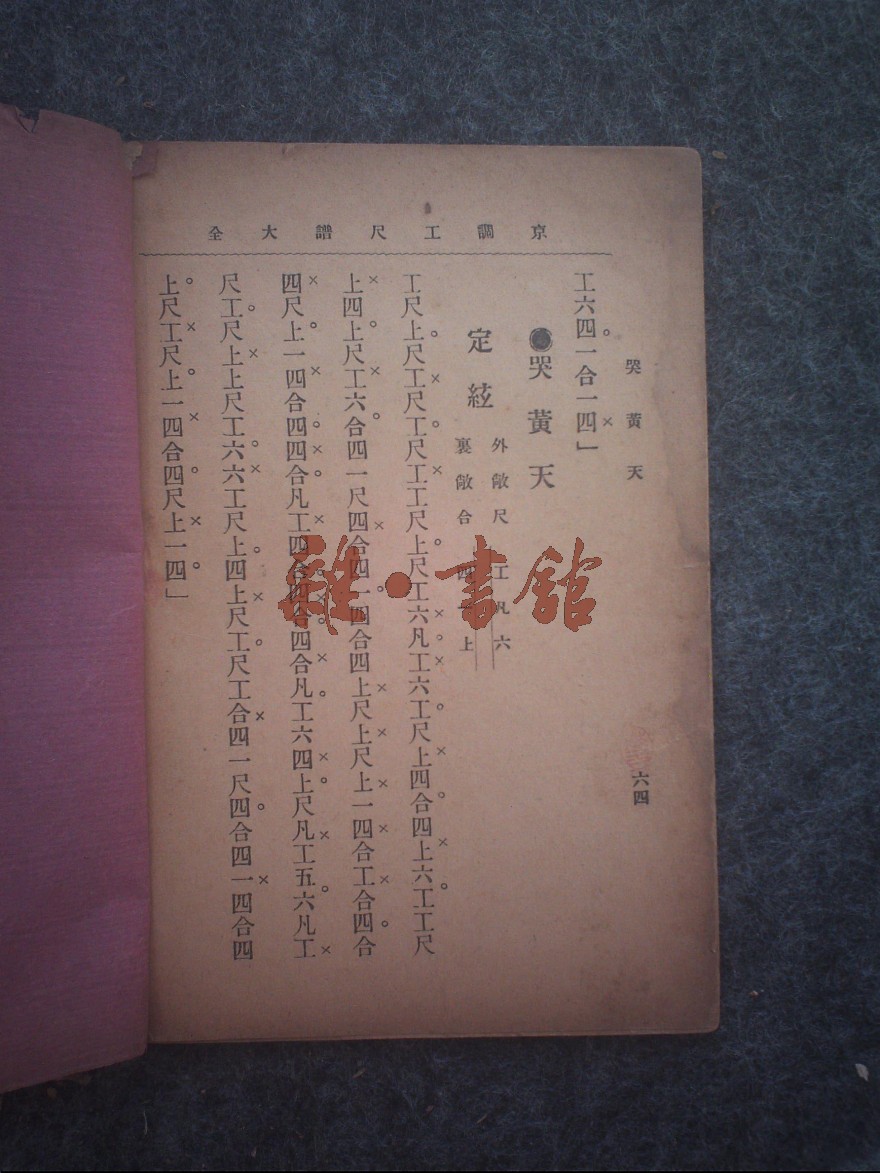 京調工尺譜大全
哭黃天
六四
工六四一合一四」
●哭黃天
定絃
外敞尺 工凡六
裏敞合 四一上
工尺上尺工尺工尺工工尺上尺工六凡工六工尺上四合四上六工工尺
上四上尺工六合四一尺四合四一四合四上尺上尺上一四合工合四合
四尺上一四合四四合凡工四合四合四合凡工六四上尺凡工五六凡工
尺工尺上上尺工六六工尺上四上尺工尺工合四一尺四合四一四合四
上尺工尺上一四合四尺上一四」
雜·書館